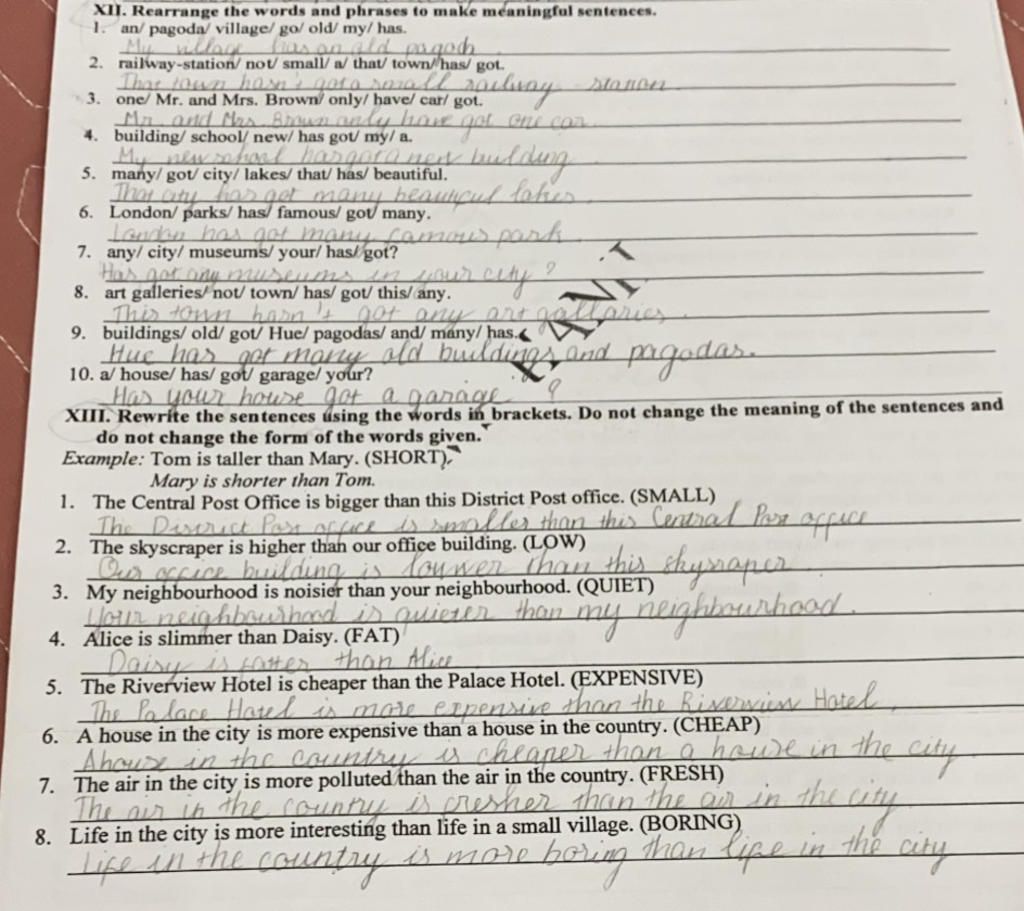 XII. Rearrange the words and phrases to make meaningful sentences.
1. an/ pagoda/ village/ go/ old/ my/ has.
My village has an old pagoda
2. railway-station/ not/ small/ a/ that/ town/ has/ got.
That town hasn't got a small railway - station
3. one/ Mr. and Mrs. Brown/ only/ have/ car/ got.
Mr. and Mrs. Brown only have got one car.
4. building/ school/ new/ has got/ my/ a.
My new school has got a new building
5. many/ got/ city/ lakes/ that/ has/ beautiful.
That city has got many beautiful lakes.
6. London/ parks/ has/ famous/ got/ many.
London has got many famous park.
7. any/ city/ museums/ your/ has/ got?
Has got any museums in your city ?
8. art galleries/ not/ town/ has/ got/ this/ any.
This town hasn't got any art gallaries.
9. buildings/ old/ got/ Hue/ pagodas/ and/ many/ has.
Hue has got many old buildings and pagodas.
10. a/ house/ has/ got/ garage/ your?
Has your house got a garage ?
XIII. Rewrite the sentences using the words in brackets. Do not change the meaning of the sentences and
do not change the form of the words given.
Example: Tom is taller than Mary. (SHORT).
Mary is shorter than Tom.
1. The Central Post Office is bigger than this District Post office. (SMALL)
The District Post office is smaller than this Central Post office
2. The skyscraper is higher than our office building. (LOW)
Our office building is than this
3. My neighbourhood is noisier than your neighbourhood. (QUIET)
Your neighbourhood is quieter than my neighbourhood.
4. Alice is slimmer than Daisy. (FAT)
Daisy is fatter than Alice.
5. The Riverview Hotel is cheaper than the Palace Hotel. (EXPENSIVE)
The Palace Hotel is more expensive than the Riverview Hotel.
6. A house in the city is more expensive than a house in the country. (CHEAP)
A house in the country is cheaper than a house in the city
7. The air in the city is more polluted than the air in the country. (FRESH)
The air in the country is fresher than the air in the city
8. Life in the city is more interesting than life in a small village. (BORING)
Life in the country is more boring than life in the city